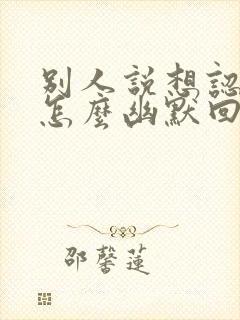 別人説想認
怎麼幽默回
邵馨蓮